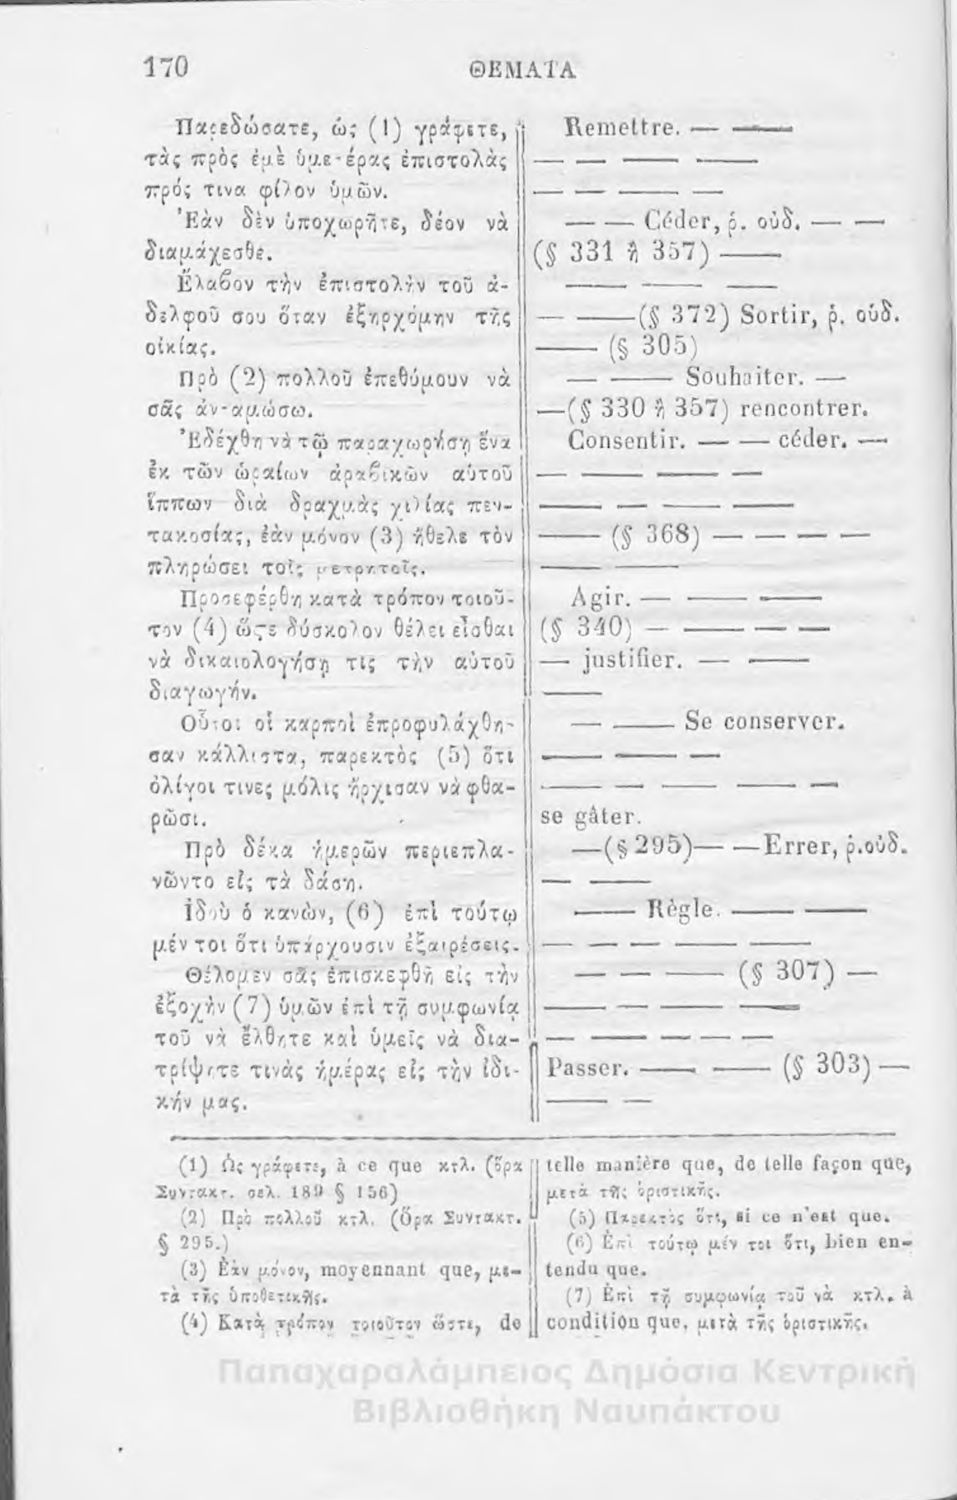 170
ΘΕΜΑΤΑ
Παρεδώσατε, ὡς (1) γράφετε,
τὰς πρὸς ἐμὲ ὑμετέρας ἐπιστολὰς
πρός τινα φίλον ὑμῶν.
Ἐὰν δὲν ὑποχωρῆτε, δέον νὰ
διαμάχεσθε.
Ἔλαβον τὴν ἐπιστολὴν τοῦ ἀ-
δελφοῦ σου ὅταν ἐξηρχόμην τῆς
οἰκίας.
Πρὸ (2) πολλοῦ ἐπεθύμουν νὰ
σᾶς ἀνταμώσω.
Ἐδέχθη νὰ τῷ παραχωρήσῃ ἕνα
ἐκ τῶν ὡραίων ἀραβικῶν αὑτοῦ
ἵππων διὰ δραχμὰς χιλίας πεν-
τακοσίας, ἐὰν μόνον (3) ἤθελε τὸν
πληρώσει τοῖς μετρητοῖς.
Προσεφέρθη κατὰ τρόπον τοιοῦ-
τον (4) ὥςτε δύσκολον θέλει εἶσθαι
νὰ δικαιολογήσῃ τις τὴν αὐτοῦ
διαγωγήν.
Οὗτοι οἱ καρποὶ ἐπροφυλάχθη-
σαν κάλλιστα, παρεκτὸς (5) ὅτι
ὀλίγοι τινες μόλις ἤρχισαν νὰ φθα-
ρῶσι.
Πρὸ δέκα ἡμερῶν περιεπλα-
νῶντο εἰς τὰ δάση.
Ἰδοὺ ὁ κανὼν, (6) ἐπὶ τούτῳ
μέν τοι ὅτι ὑπάρχουσιν ἐξαιρέσεις.
Θέλομεν σᾶς ἐπισκεφθῆ εἰς τὴν
ἐξοχὴν (7) ὑμῶν ἐπὶ τῇ συμφωνίᾳ
τοῦ νὰ ἔλθητε καὶ ὑμεῖς νὰ δια-
τρίψητε τινὰς ἡμέρας εἰς τὴν ἰδι-
κήν μας.
Remettre. — —
— — — —
— — — —
— — Céder, ῥ. οὐδ. — —
(§ 331 ἢ 357) —
— — —
— —(§ 372) Sortir, ῥ. οὐδ.
— (§ 305)
— — Souhaiter. —
—(§ 330 ἢ 357) rencontrer.
Consentir. — — céder. —
— — — —
— — — —
— (§ 368) — — — —
— —
Agir. — — —
(§ 340) — — — —
— justifier. — —
—
— — Se conserver.
— — — —
— — — — —
se gâter.
—(§ 295)— —Errer, ῥ.οὐδ.
— —
— Règle. — —
— — — — —
— — — (§ 307) —
— — — —
— — — — —
Passer. — — (§ 303) —
— —
(1) Ὡς γράφετε, à ce que κτλ. (ὅρα
Συντακτ. σελ. 189 § 156)
(2) Πρὸ πολλοῦ κτλ. (Ὅρα Συντακτ.
§ 295.)
(3) Ἐὰν μόνον, moyennant que, με-
τὰ τῆς ὑποθετικῆς.
(4) Κατὰ τρόπον τοιοῦτον ὥστε, de
telle manière que, de telle façon que,
μετὰ τῆς ὁριστικῆς.
(5) Παρεκτὸς ὅτι, si ce n'est que.
(6) Ἐπὶ τούτῳ μέν τοι ὅτι, bien en-
tendu que.
(7) Ἐπὶ τῇ συμφωνίᾳ τοῦ νὰ κτλ. à
condition que, μετὰ τῆς ὁριστικῆς.
Παπαχαραλάμπειος Δημόσια Κεντρική
Βιβλιοθήκη Ναυπάκτου